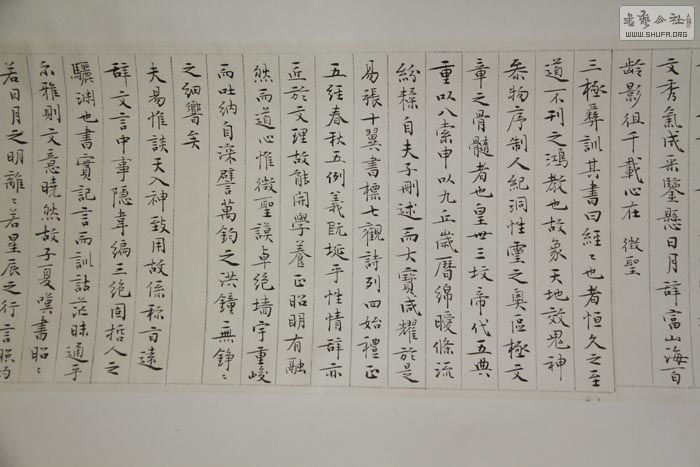 書藝公社
WWW.SHUFA.ORG
文秀氣成采鑒懸日月辭富山海百
龄影徂千載心在 徵聖
三極彝訓其書曰經〻也者恒久之至
道不刊之鴻教也故象天地效鬼神
參物序制人紀洞性靈之奧區極文
章之骨髓者也皇世三墳帝代五典
重以八索申以九丘歲曆綿曖條流
紛糅自夫子刪述而大寶咸耀於是
易張十翼書標七觀詩列四始禮正
五經春秋五例義既埏乎性情辭亦
匠於文理故能開學養正昭明有融
然而道心惟微聖謨卓絕墙宇重峻
而吐納自深譬萬鈞之洪鐘無錚〻
之細響矣
夫易惟談天入神致用故係稱旨遠
辭文言中事隱韋編三絕固哲人之
驪淵也書實記言而訓詁茫昧通乎
尔雅則文意曉然故子夏嘆書昭〻
若日月之明離〻若星辰之行言照灼